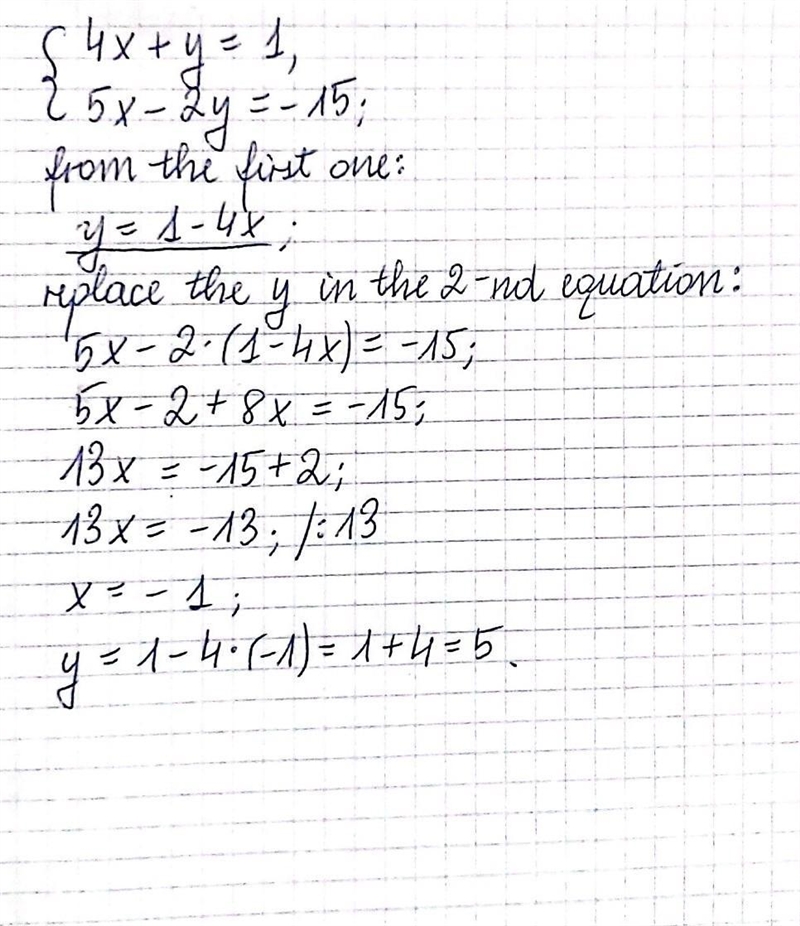 { 4x + y = 1,
5x - 2y = -15;
from the first one:
y = 1 - 4x ;
replace the y in the 2-nd equation:
5x - 2·(1 - 4x) = -15;
5x - 2 + 8x = -15;
13x = -15 + 2;
13x = -13; /:13
x = - 1 ;
y = 1 - 4·(-1) = 1 + 4 = 5.